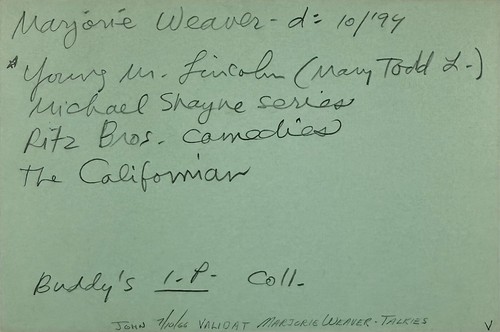 Marjorie Weaver - d: 10/'94
* Young M. Lincoln (Mary Todd L.)
Michael Shayne series
Ritz Bros. comedies
The Californian
Buddy's I.P. Coll.
JOHN 7/10/66 VALIDAT MARJORIE WEAVER - TALKIES
V